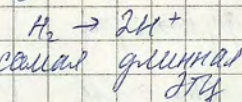 H₂ → 2H⁺
самая длинная
ЭТЦ